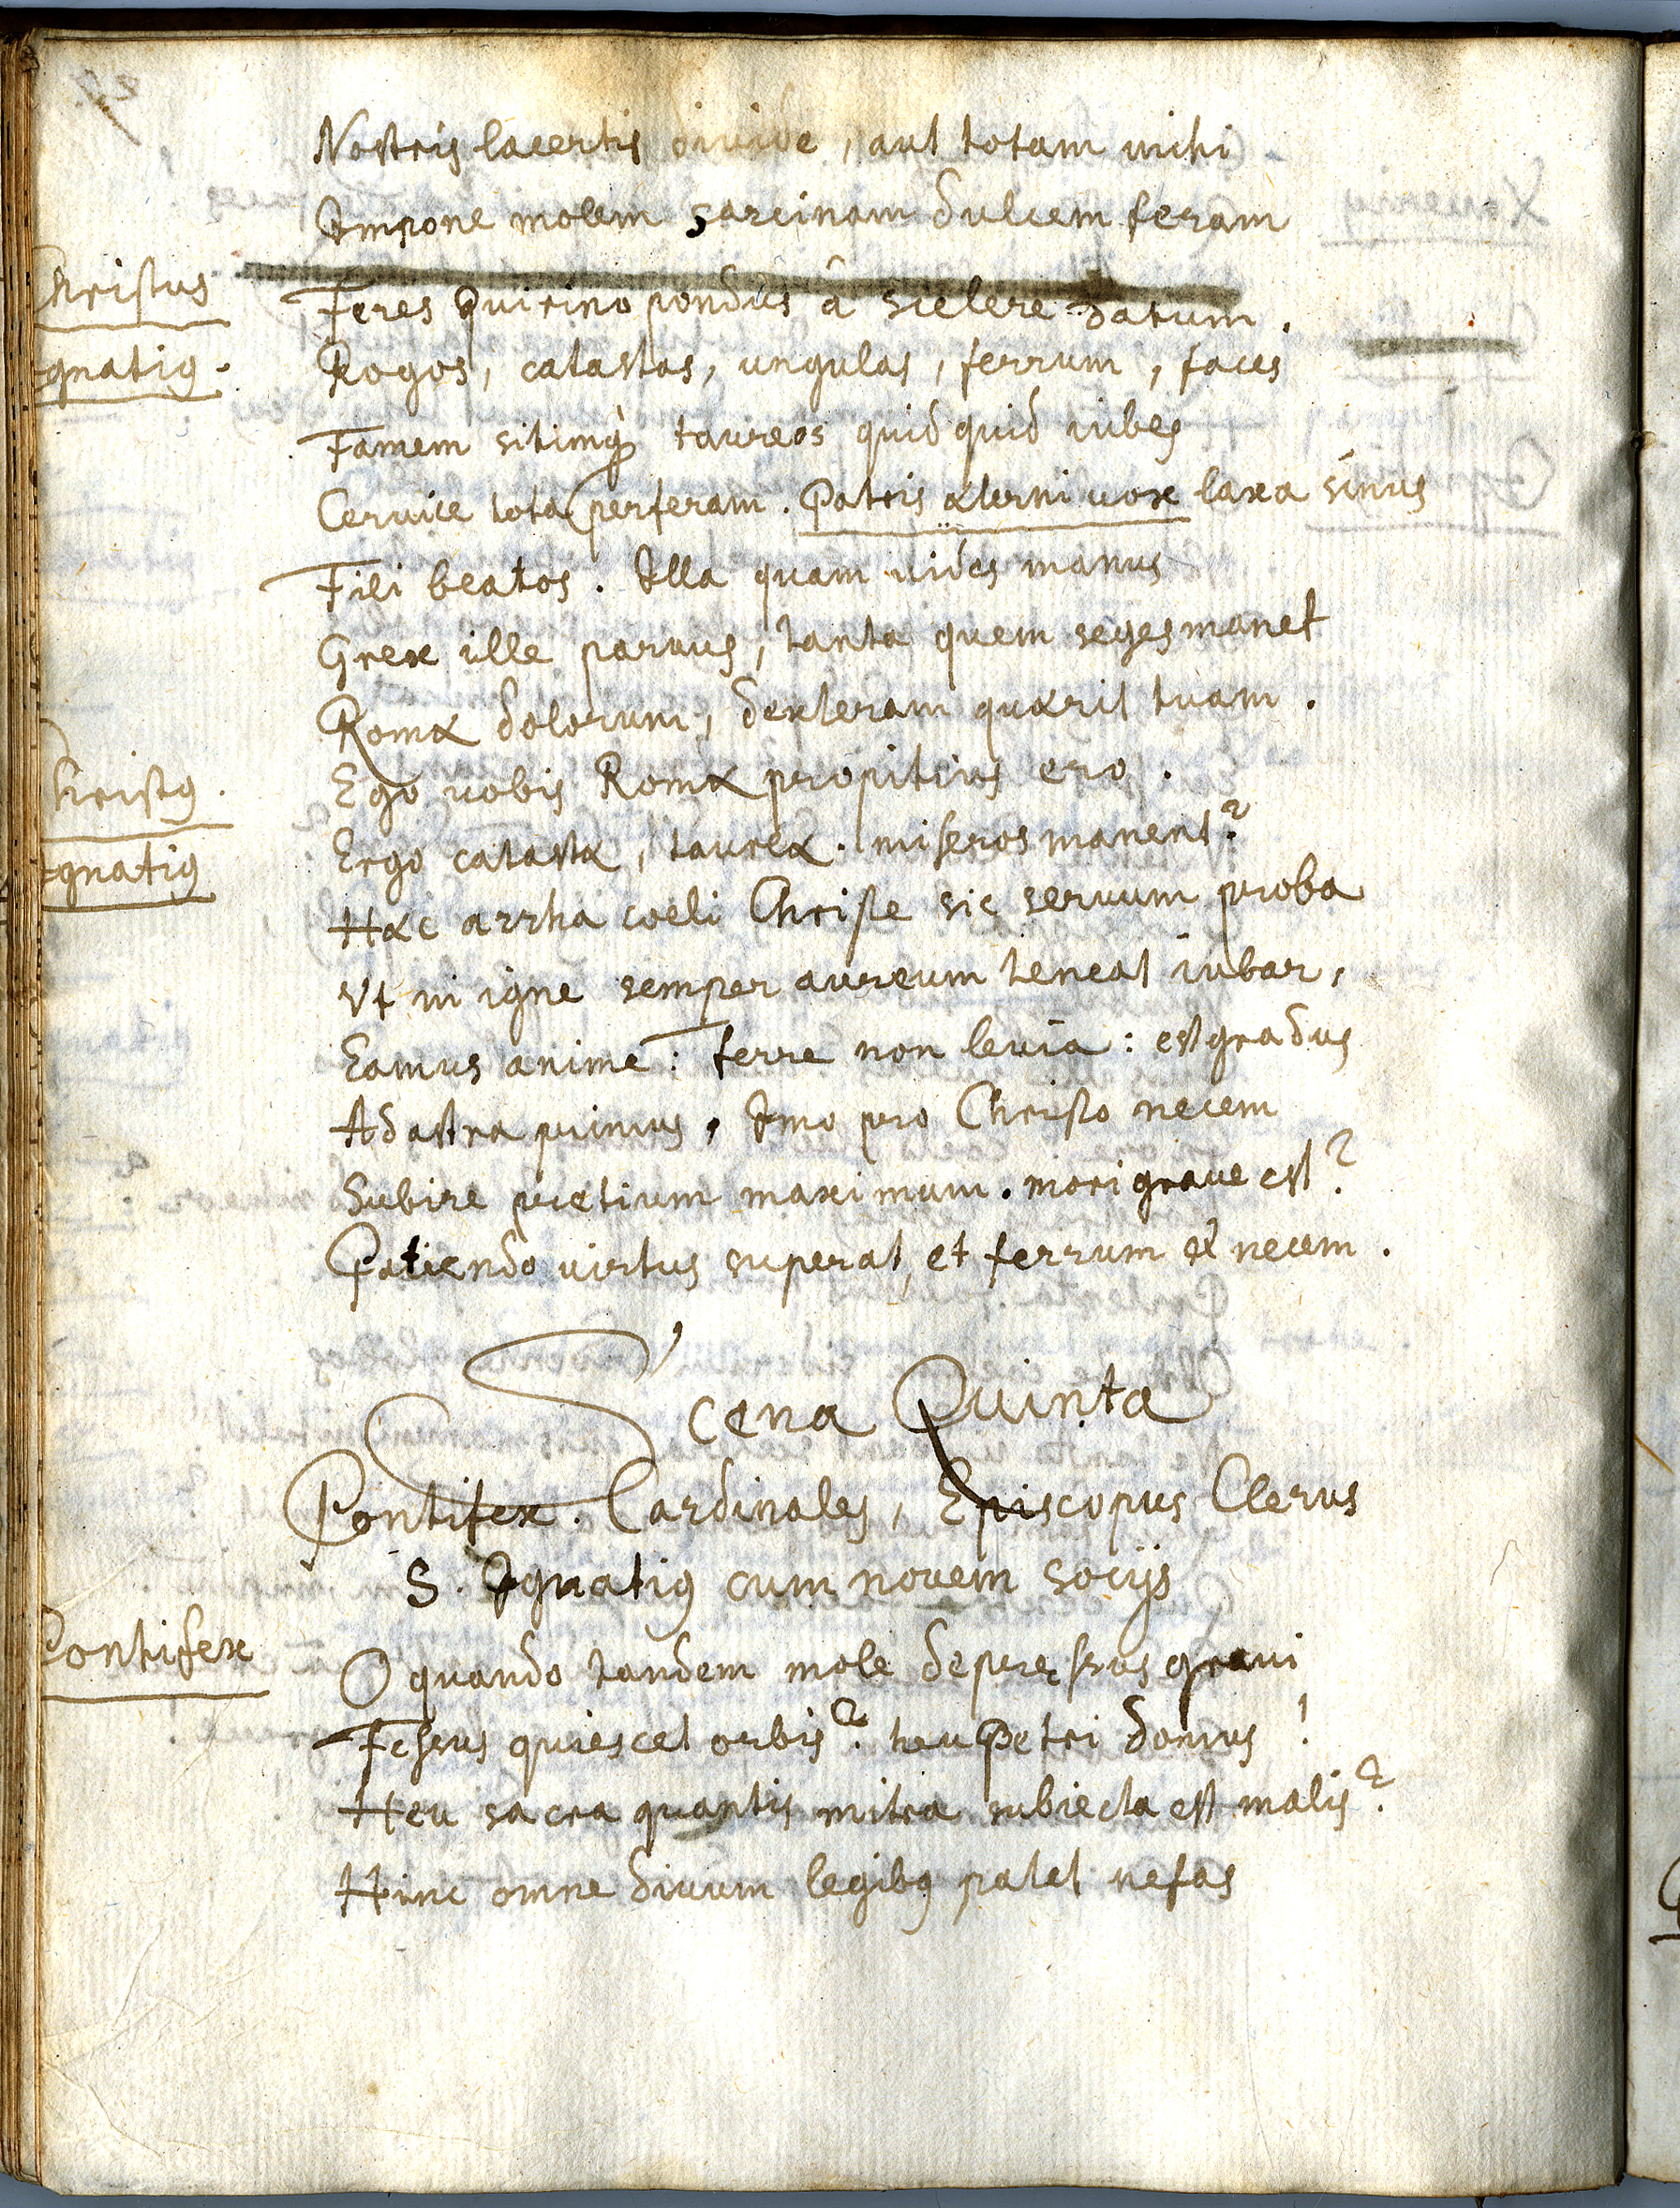 Nostris lacertis divide, aut totam mihi
Impone molem sarcinam dulcem feram
Christus Feres Quirino pondus â scelere datum.
Ignatiꝰ. Rogos, catastas, ungulas, ferrum, faces
Famem sitimq̀ taureos quidquid iubes
Cervice tota perferam. Patris æterni vox laxa sinus
Fili beatos. Illa quam vides manus
Grex ille parvus, tanta quem seges manet
Romæ dolorum, dexteram quærit tuam.
Christꝰ. Ego vobis Romæ propitius ero.
Ignatiꝰ Ergo catastæ, taureæ. miseros manent?
Hæc arrha coeli Christe sic servum proba
Ut in igne semper aureum teneat iubar,
Eamus anime: ferre non levia: est gradus
Ad astra primus, Imo pro Christo necem
Subire pretium maximum. mori grave est?
Patiendo virtus superat, et ferrum et necem.
Scena Quinta
Pontifex. Cardinales, Episcopus Clerus
S. Ignatiꝰ cum novem socijs
Pontifex O quando tandem mole depręssus gravi
Fessus quiescet orbis? heu Petri domus!
Heu sacra quantis mitra subiecta est malis?
Hinc omne divum legibꝰ patet nefas